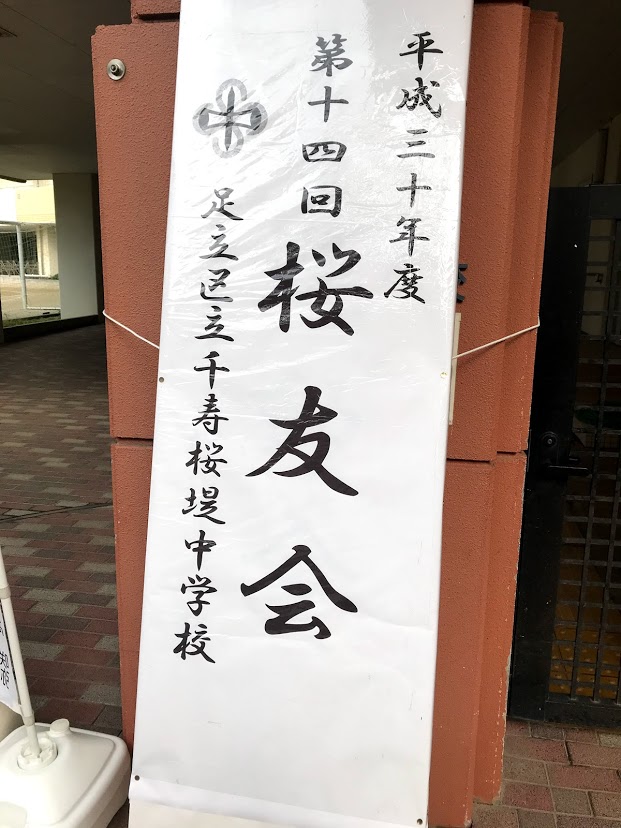 平成三十年度
第十四回 桜友会
中
足立区立千寿桜堤中学校